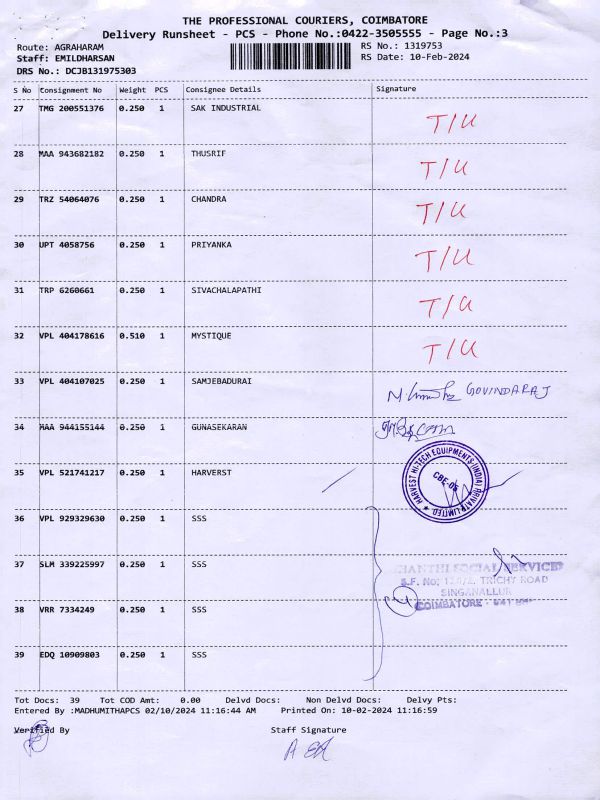 THE PROFESSIONAL COURIERS, COIMBATORE
Delivery Runsheet - PCS - Phone No.:0422-3505555 - Page No.:3
Route: AGRAHARAM RS No.: 1319753
Staff: EMILDHARSAN RS Date: 10-Feb-2024
DRS No.: DCJB131975303
S No Consignment No Weight PCS Consignee Details Signature
27 TMG 200551376 0.250 1 SAK INDUSTRIAL T/U
28 MAA 943682182 0.250 1 THUSRIF T/U
29 TRZ 54064076 0.250 1 CHANDRA T/U
30 UPT 4058756 0.250 1 PRIYANKA T/U
31 TRP 6260661 0.250 1 SIVACHALAPATHI T/U
32 VPL 404178616 0.510 1 MYSTIQUE T/U
33 VPL 404107025 0.250 1 SAMJEBADURAI GOVINDARAJ
34 MAA 944155144 0.250 1 GUNASEKARAN
35 VPL 521741217 0.250 1 HARVERST
HARVEST HI-TECH EQUIPMENTS (INDIA) PRIVATE LIMITED
CBE-05
36 VPL 929329630 0.250 1 SSS
37 SLM 339225997 0.250 1 SSS
SOCIAL SERVICE
S.F. No: TRICHY ROAD
SINGANALLUR
COIMBATORE
38 VRR 7334249 0.250 1 SSS
39 EDQ 10909803 0.250 1 SSS
Tot Docs: 39 Tot COD Amt: 0.00 Delvd Docs: Non Delvd Docs: Delvy Pts:
Entered By :MADHUMITHAPCS 02/10/2024 11:16:44 AM Printed On: 10-02-2024 11:16:59
Verified By Staff Signature